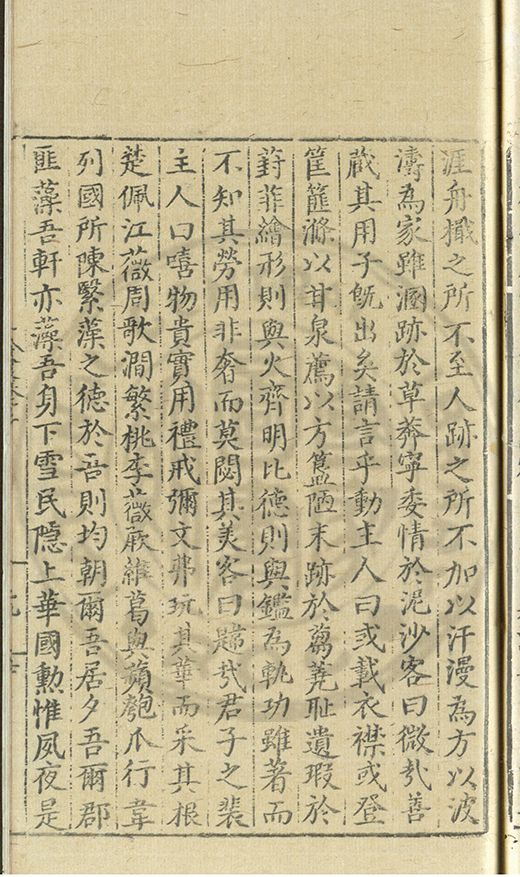 涯舟檝之所不至人跡之所不加以汗漫為方以波
濤為家雖溷跡於草莽寧委情於泥沙客曰微㢤善
蔵其用子旣出矣請言乎動主人曰或載衣襟或登
筐篚滌以甘泉薦以方簋陋末跡於蔿蕘耻遺瑕於
葑菲繪形則與火齊明比德則與鑑為軌功雖著而
不知其勞用非奢而莫閟其美客曰韙㢤君子之裴
主人曰嘻物貴實用禮戒彌文弗玩其華而采其根
楚佩江薇周歌澗繁桃李薇蕨維葛與蘋匏瓜行葦
列國所陳繄藻之德於吾則均朝爾吾居夕吾爾郡
匪藻吾軒亦藻吾身下雪民隠上華國勲惟夙夜是